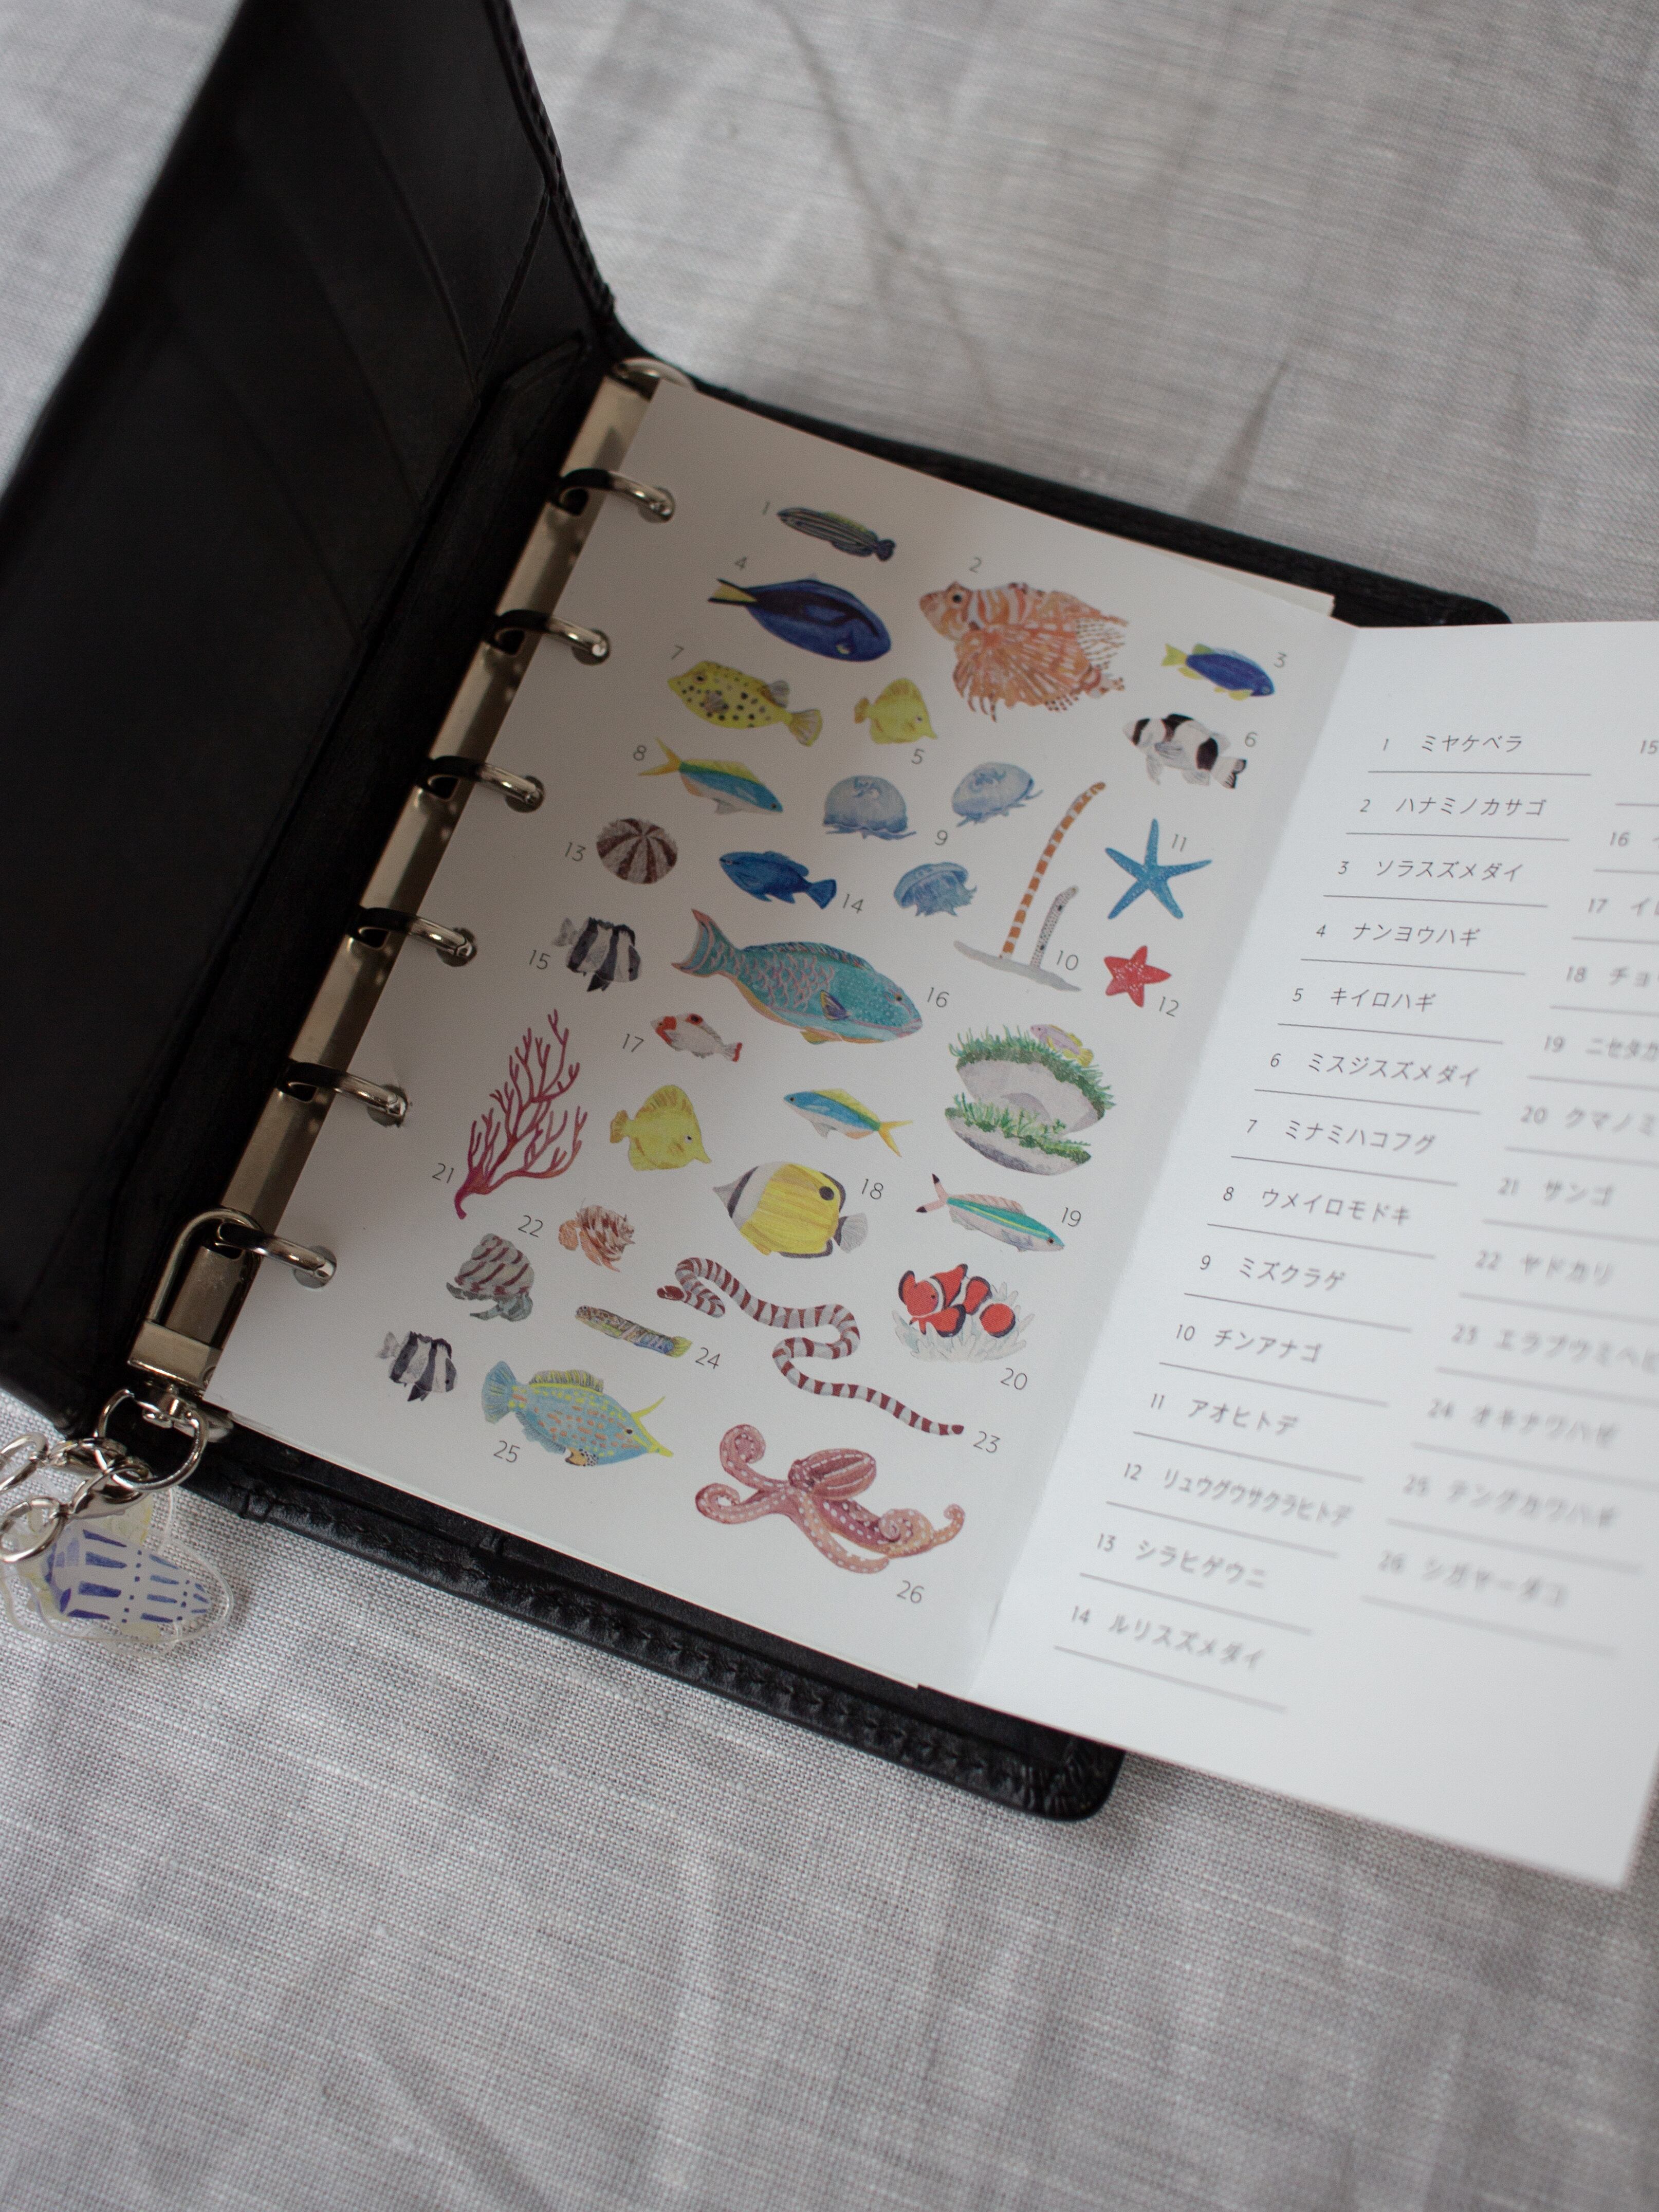 1
2
4
3
7
6
5
8
9
11
13
14
10
15
12
16
17
21
18
19
22
24
20
23
25
26
1 ミヤケベラ
2 ハナミノカサゴ
3 ソラスズメダイ
4 ナンヨウハギ
5 キイロハギ
6 ミスジスズメダイ
7 ミナミハコフグ
8 ウメイロモドキ
9 ミズクラゲ
10 チンアナゴ
11 アオヒトデ
12 リュウグウサクラヒトデ
13 シラヒゲウニ
14 ルリスズメダイ
15
16
17 イ
18 チョ
19 ニセタカ
20 クマノミ
21 サンゴ
22 ヤドカリ
23 エラブウミヘビ
24 オキナワハゼ
25 テングカワハギ
26 シガヤーダコ